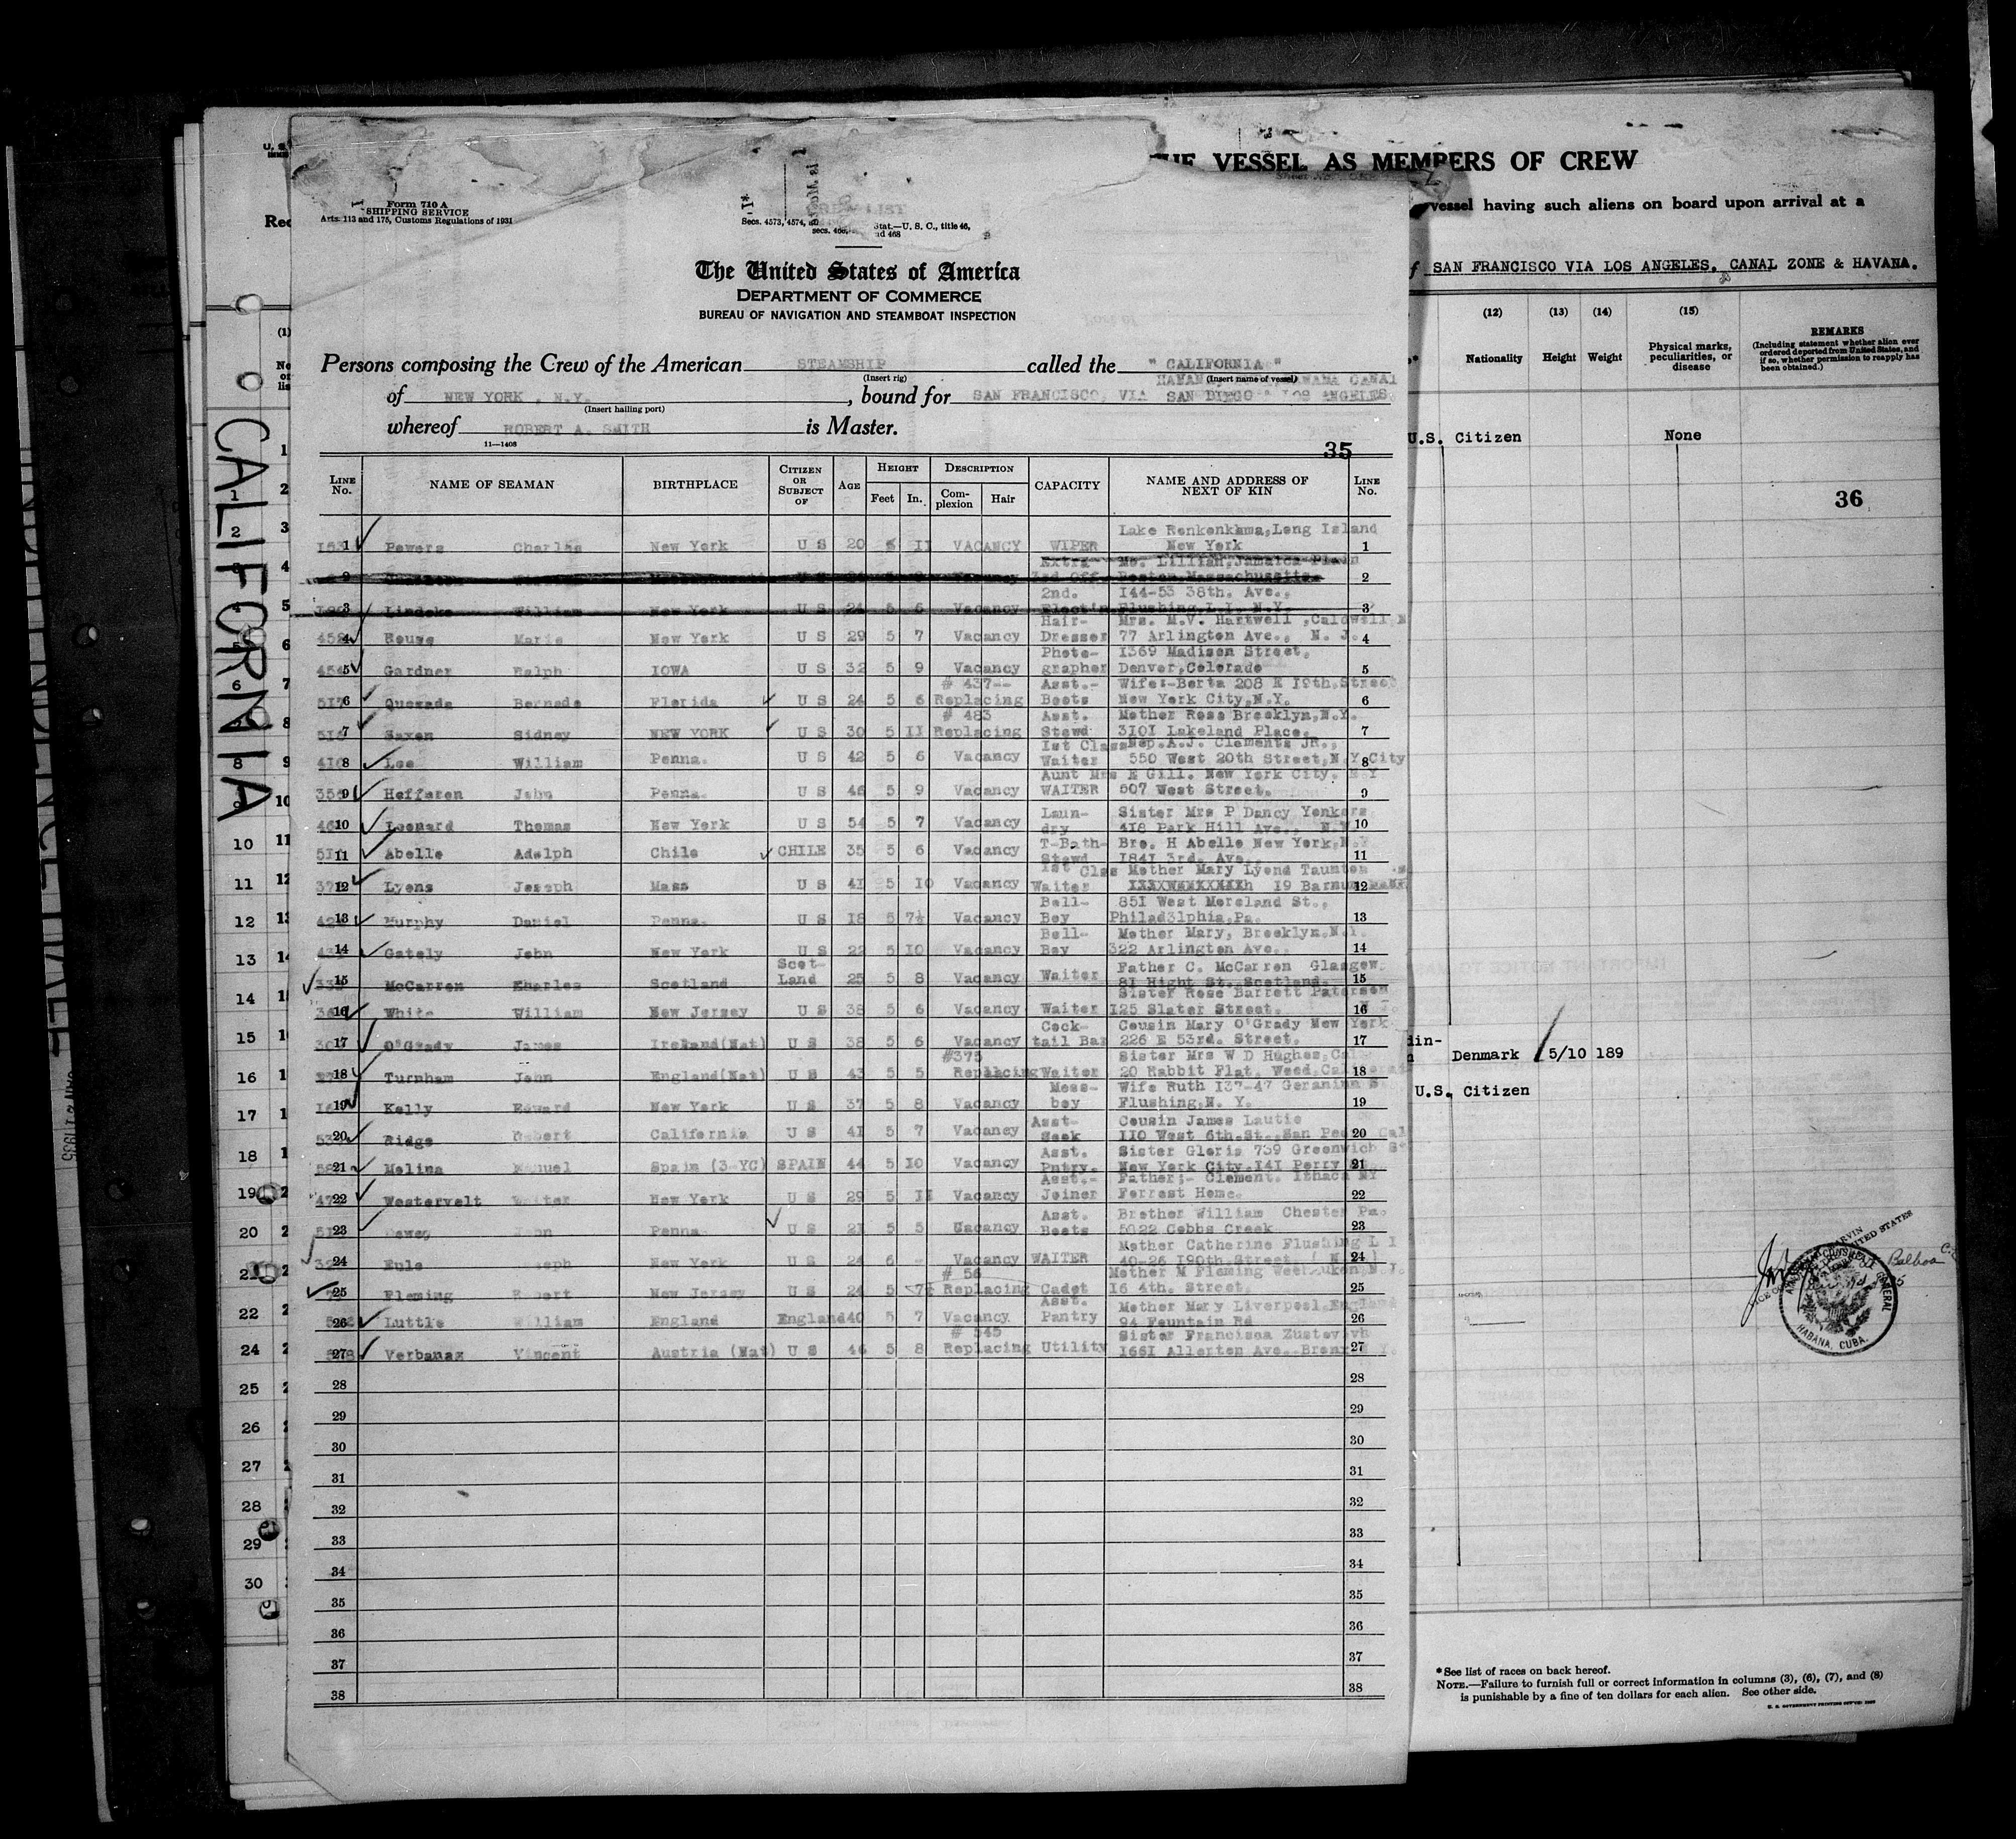 THE VESSEL AS MEMBERS OF CREW
vessel having such aliens on board upon arrival at a
SAN FRANCISCO VIA LOS ANGELES, CANAL ZONE & HAVANA.
Form 710 A
SHIPPING SERVICE
Arts. 113 and 175, Customs Regulations of 1931
Secs. 4573, 4574,
Stat.—U. S. C., title 46,
The United States of America
DEPARTMENT OF COMMERCE
BUREAU OF NAVIGATION AND STEAMBOAT INSPECTION
Persons composing the Crew of the American STEAMSHIP called the " CALIFORNIA "
(Insert rig) (Insert name of vessel)
of NEW YORK , N.Y. , bound for SAN FRANCISCO, VIA SAN DIEGO LOS ANGELES
(Insert hailing port)
whereof ROBERT A. SMITH is Master.
11—1408
35
LINE No. NAME OF SEAMAN BIRTHPLACE CITIZEN OR SUBJECT OF AGE HEIGHT Feet In. DESCRIPTION Complexion Hair CAPACITY NAME AND ADDRESS OF NEXT OF KIN LINE No.
Lake Ronkonkoma,Long Island
1 Powers Charles New York U S 20 5 11 VACANCY WIPER New York 1
Extra Mo. Lillian,Jamaica Plain
2 Boston Massachusetts 2
2nd. 144-53 38th. Ave.,
3 Lindeke William New York U S 24 5 6 Vacancy Flushing,L.I. N.Y. 3
Hair- Mrs. M.V. Hartwell ,Caldwell,N
4 Rouse Marie New York U S 29 5 7 Vacancy Dresser 77 Arlington Ave., N. J. 4
Photo- 1369 Madison Street,
5 Gardner Ralph IOWA U S 32 5 9 Vacancy grapher Denver,Colorado 5
# 437-- Asst.- Wife:-Berta 208 E 19th,Street
6 Quesada Bernado Florida U S 24 5 6 Replacing Boots New York City,N.Y. 6
# 483 Asst. Mother Rose Brooklyn,N.Y.
7 Saxon Sidney NEW YORK U S 30 5 11 Replacing Stewd 3101 Lakeland Place. 7
1st Class Nep.A.J. Clements JR.,
8 Lee William Penna. U S 42 5 6 Vacancy Waiter 550 West 20th Street,N.Y.City 8
Aunt Mrs E Gill. New York City. N Y
9 Hefferon John Penna. U S 46 5 9 Vacancy WAITER 507 West Street. 9
Laun- Sister Mrs P Dancy Yonkers
10 Leonard Thomas New York U S 54 5 7 Vacancy dry 418 Park Hill Ave., N.Y 10
T-Bath- Bro. H Abello New York,N.Y
11 Abelle Adolph Chile CHILE 35 5 6 Vacancy Stewd 1841 3rd. Ave. 11
1st Clas Mother Mary Lyond Taunton
12 Lyons Joseph Mass U S 41 5 10 Vacancy Waiter 19 Barnum 12
Bell- 851 West Moreland St.,
13 Murphy Daniel Penna. U S 18 5 7½ Vacancy Boy Philad3lphia,Pa. 13
Bell- Mother Mary, Brooklyn,N.Y.
14 Gately John New York U S 22 5 10 Vacancy Boy 322 Arlington Ave., 14
Scot- Father C. McCarron Glasgow.
15 McCarron Kharles Scotland Land 25 5 8 Vacancy Waiter 81 Hight St. Scotland. 15
Sister Rose Barrett Paterson
16 White William New Jersey U S 38 5 6 Vacancy Waiter 125 Slater Street. 16
Cock- Cousin Mary O'Grady New York
17 O'Grady James Ireland(Nat) U S 38 5 6 Vacancy tail Bar 226 E 53rd. Street. 17
#375 Sister Mrs W D Hughes,Cal
18 Turnham John England(Nat) U S 43 5 5 Replacing Waiter 20 Rabbit Flat. Weed,California 18
Mess- Wife Ruth 137-47 Geranium S
19 Kelly Edward New York U S 37 5 8 Vacancy boy Flushing,N. Y. 19
Asst- Cousin James Lautie
20 Ridge Robert California U S 41 5 7 Vacancy 110 West 6th.St. San Pedro Cal 20
Asst. Sister Gloria 739 Greenwich St
21 Molina Manuel Spain (3-YC) SPAIN 44 5 10 Vacancy Pntry. New York City.141 Perry 21
Asst.- Father;- Clement. Ithaca NY
22 Westervelt Walter New York U S 29 5 11 Vacancy Joiner Forrest Home. 22
Asst. Brother William Chester Pa.
23 Dewey John Penna U S 21 5 5 Vacancy Boots 5022 Cobbs Creek 23
Mother Catherine Flushing L I
24 Eule Joseph New York U S 26 6 - Vacancy WAITER 40-26 190th.Street ( N.Y.) 24
# 56 Mother M Fleming Weehauken,N.J.
25 Fleming Robert New Jersey U S 24 5 7½ Replacing Cadet 16 4th. Street. 25
Asst. Mother Mary Liverpool,England
26 Luttle William England England 40 5 7 Vacancy Pantry 94 Fountain Rd 26
# 545 Sister Francisca
27 Verbanaz Vincent Austria (Nat) U S 46 5 8 Replacing Utility 1661 Allerton Ave. Bronx N.Y. 27
28 28
29 29
30 30
31 31
32 32
33 33
34 34
35 35
36 36
37 37
38 38
CALIFORNIA
(12) (13) (14) (15)
Nationality Height Weight Physical marks, peculiarities, or disease REMARKS
(Including statement whether alien ever ordered deported from United States, and if so, whether permission to reapply has been obtained.)
U.S. Citizen None
36
Denmark 5/10 189
U.S. Citizen
Balboa
HABANA, CUBA.
*See list of races on back hereof.
NOTE.—Failure to furnish full or correct information in columns (3), (6), (7), and (8)
is punishable by a fine of ten dollars for each alien. See other side.